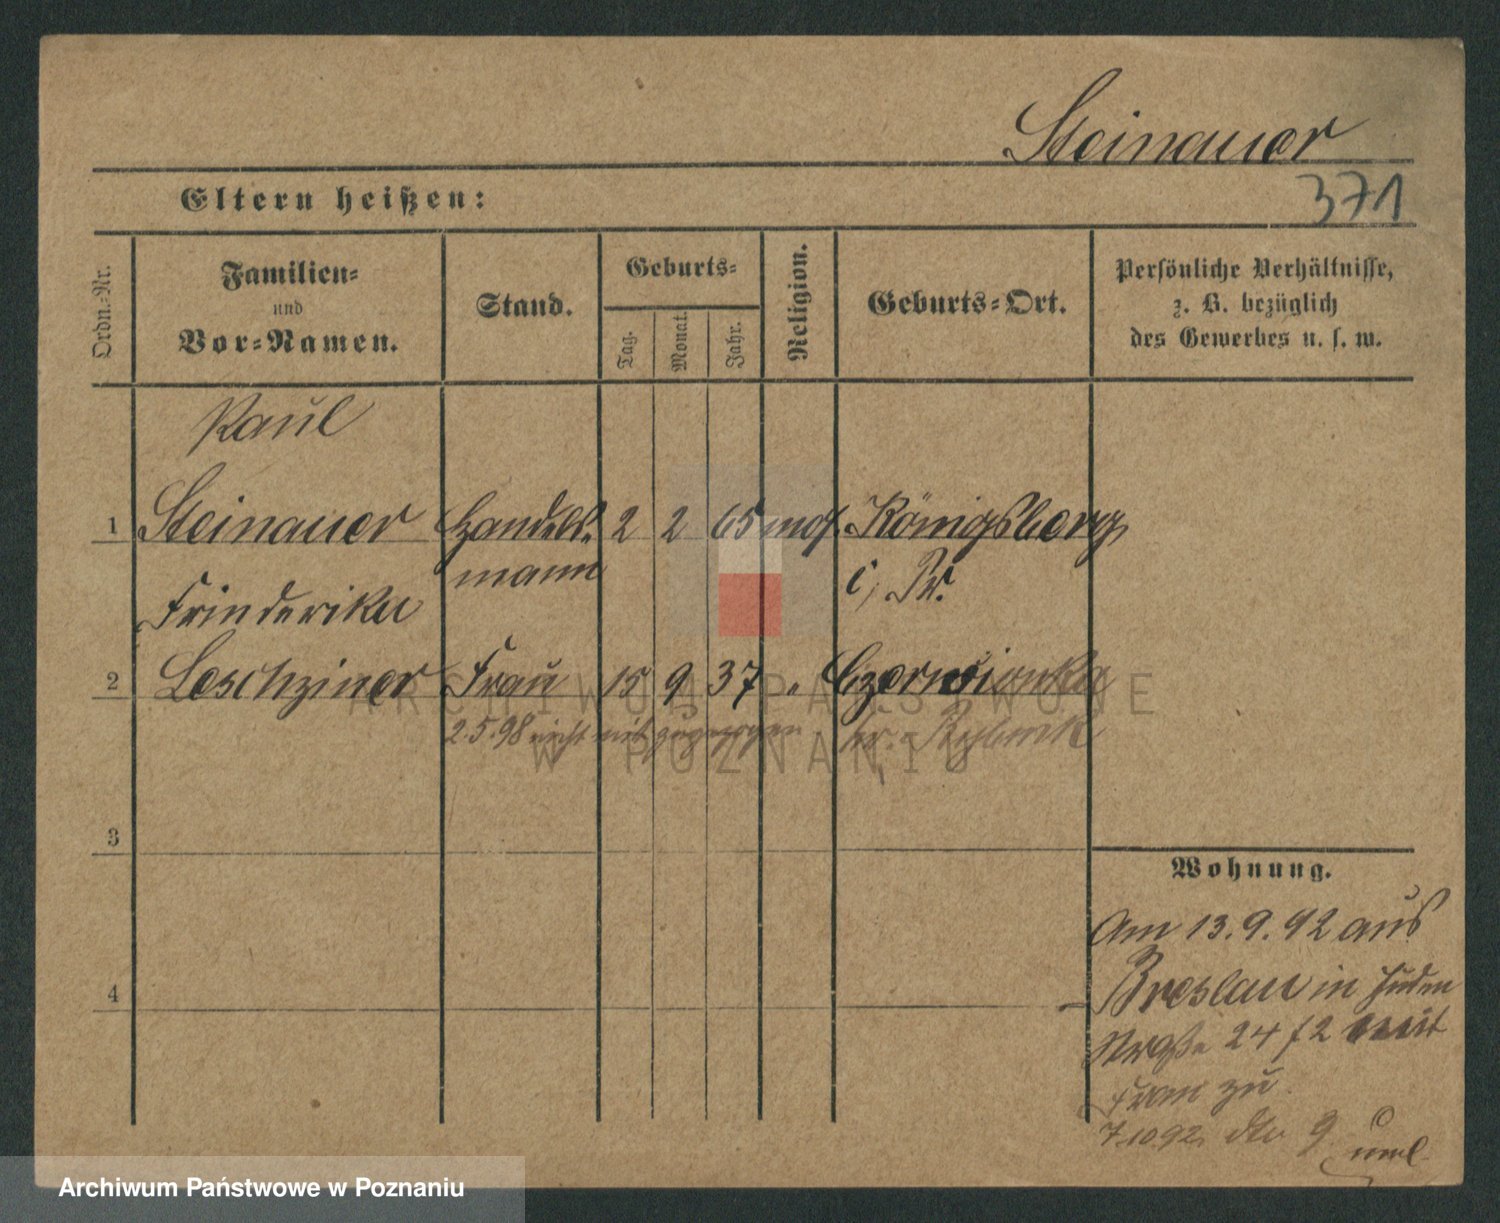 Steinauer
Eltern heißen:
371
Ordn.-Nr.
Familien-
und
Vor-Namen.
Stand.
Geburts-
Tag.
Monat.
Jahr.
Religion.
Geburts-Ort.
Persönliche Verhältnisse,
z. B. bezüglich
des Gewerbes u. s. w.
Paul
1 Steinauer Handels- 2 2 65 mos. Königsberg
mann i. Pr.
Friederika
2 Leschziner Frau 15 9 37 " Czerwionka
2.5.98 nicht mit zugezogen Kr. Rybnik
3
4
Wohnung.
Am 13.9.92 aus
Breslau in Juden
Straße 24 f 2 mit
Frau zu
7.10.92. dto 9
ARCHIWUM PAŃSTWOWE
W POZNANIU
Archiwum Państwowe w Poznaniu